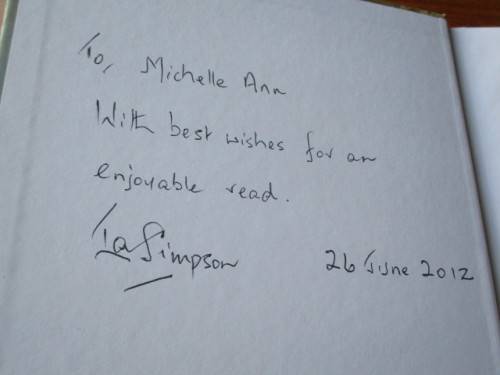 To, Michelle Ann
With best wishes for an
enjoyable read.
Simpson 26 June 2012